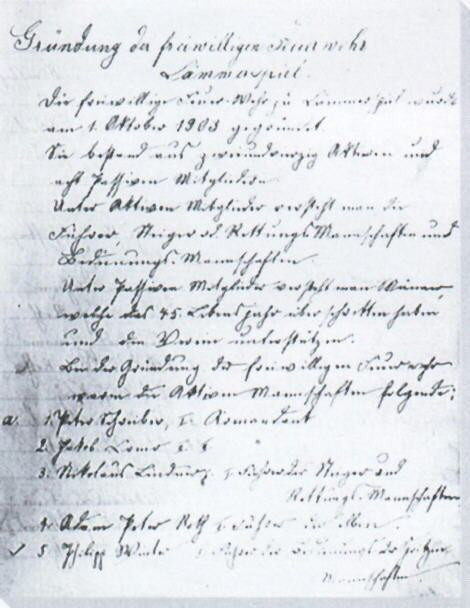 Gründung der freiwilligen Feuerwehr
Lämmerspiel.
Die freiwillige Feuer-Wehr zu Lämmerspiel wurde
am 1. Oktober 1903 gegründet.
Sie bestand aus zweiundvierzig Aktiven und
acht Passiven Mitgliedern.
Unter Aktiven Mitglieder versteht man die
Führer, Steiger od. Rettungs Mannschaften und
Bedienungs-Mannschaften.
Unter Passiven Mitglieder versteht man Männer,
welche das 45. Lebensjahr überschritten haben
und den Verein unterstützen.
Bei der Gründung der freiwilligen Feuerwehr
waren die Aktiven Mannschaften folgende:
a. 1. Peter Schreiber, I. Komandant
2. Jakob
3. Nikolaus Lindner I. Führer der Steiger und
Rettungs-Mannschaften
4. Adam Peter Roth Führer derselben.
5 Philipp Winter Führer der Bedienungs der Spritzen
Mannschaften.